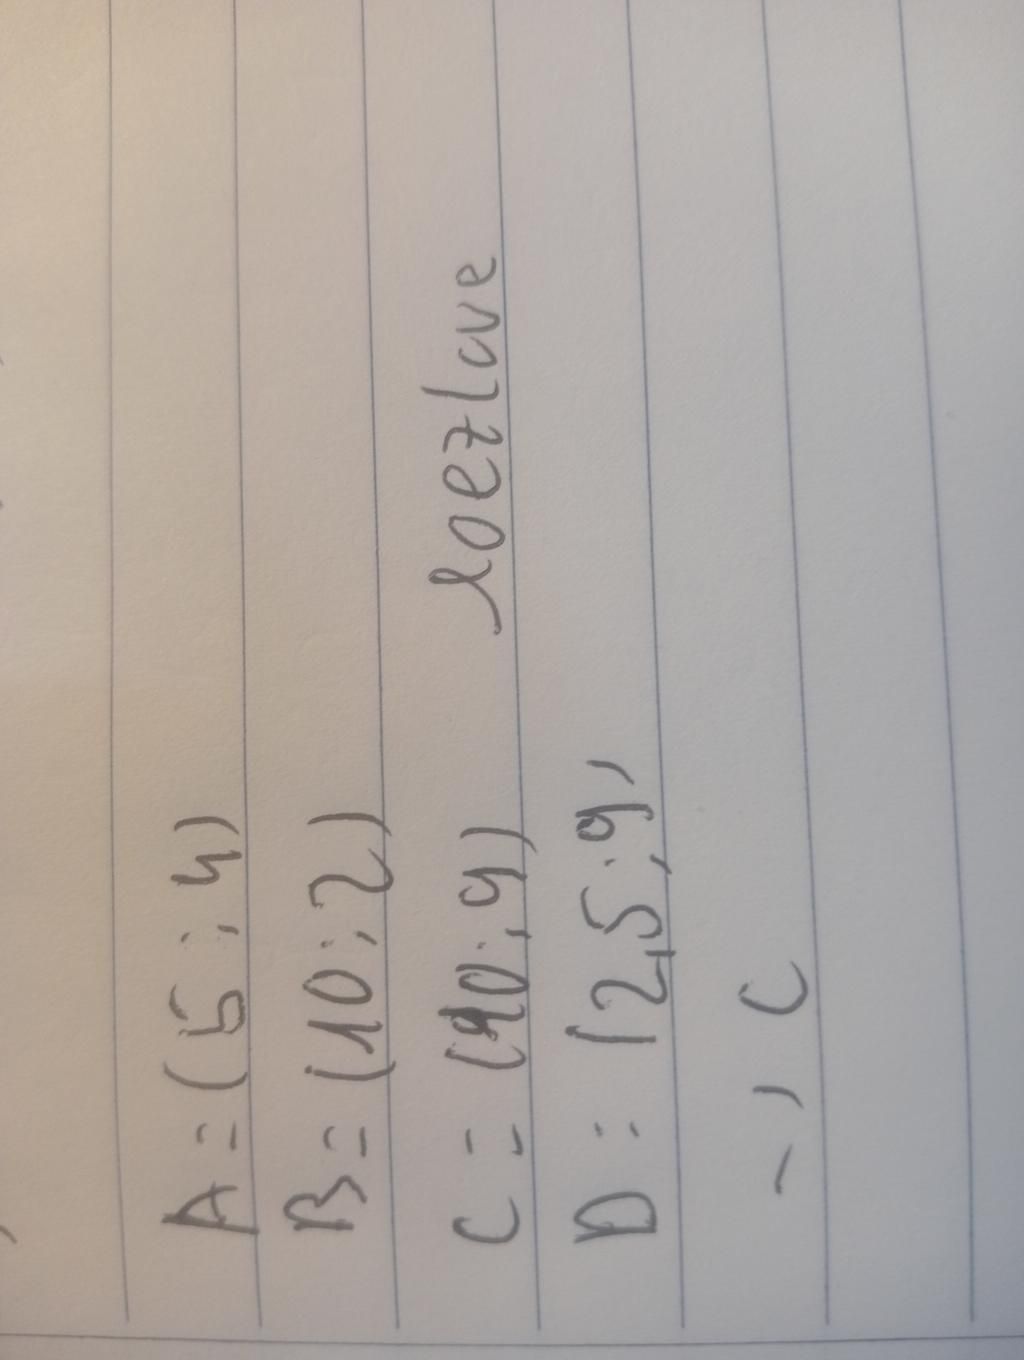 A = (5 ; 4)
B = (10 ; 2)
C = (10 ; 9) loezlove
D = (2,5 ; 9)
~ ) C